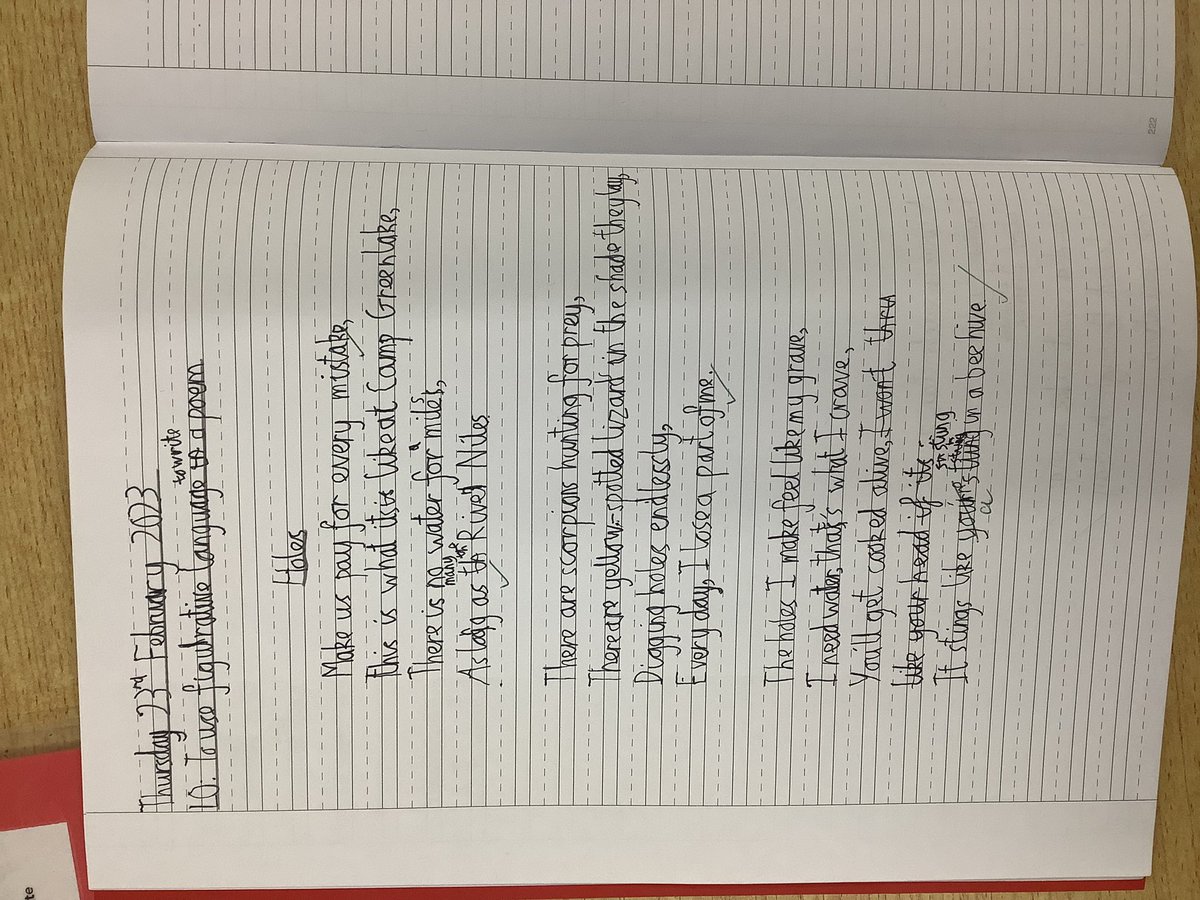 Thursday 23rd February 2023
LO: To use figurative language to write a poem
Holes
Make us pay for every mistake,
This is what it is like at Camp Greenlake,
There is no water for a mile,
As many as the River Niles.
There are scorpions hunting for prey,
There are yellow-spotted lizard in the shade they lay,
Digging holes endlessly,
Every day, I lose a part of me.
The holes I make feel like my grave,
I need water, that's what I crave,
You'll get cooked alive,
like your head if its
It stings like a sting in a bee hive
222
te